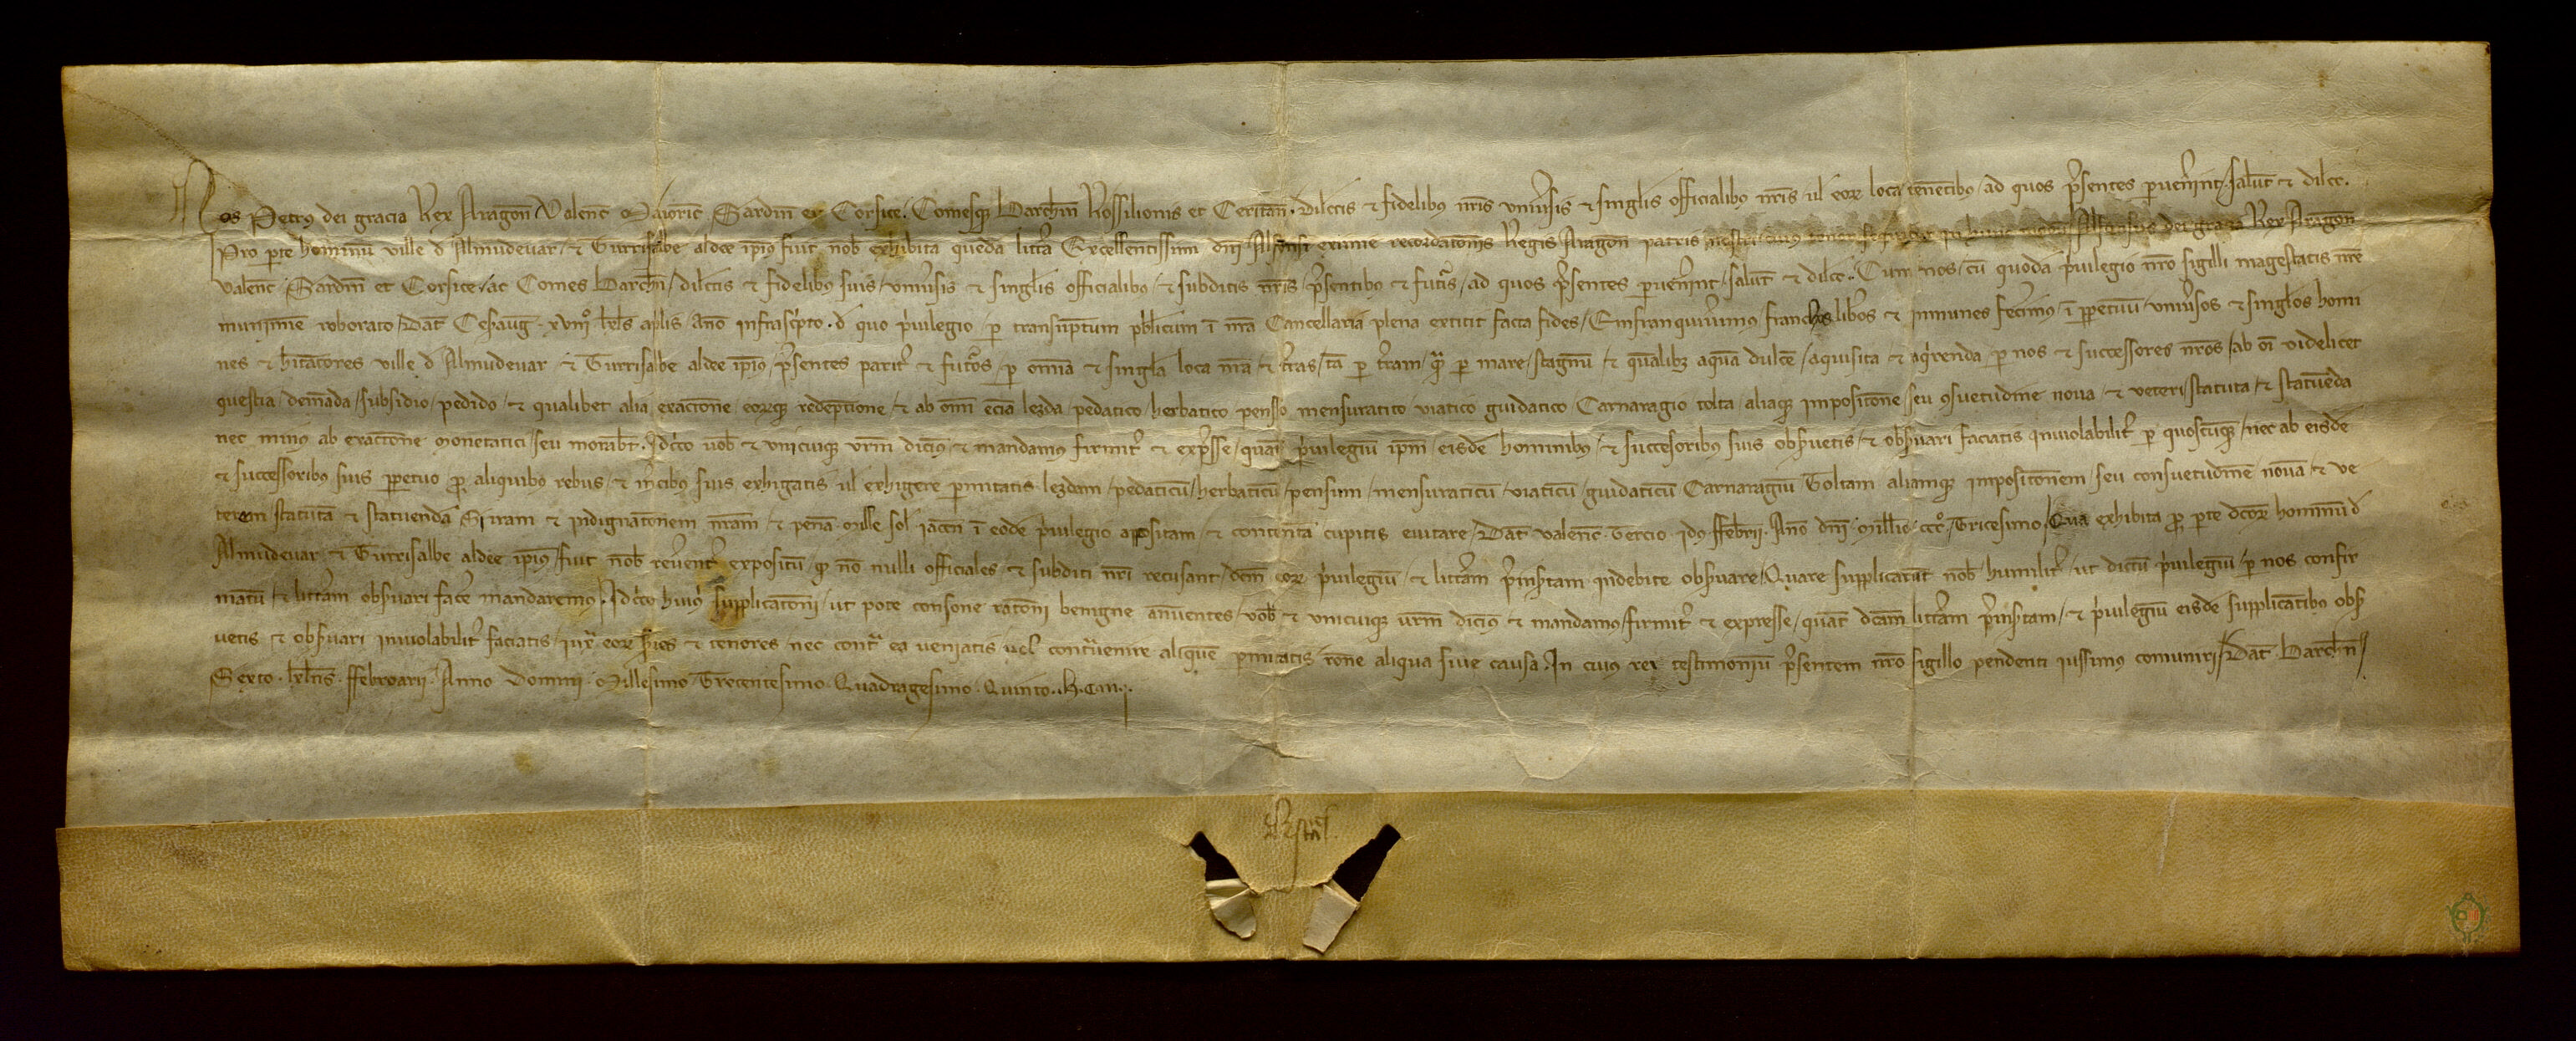 Nos Petrus dei gracia Rex Aragon Valenc Maioric Sardin et Corsice Comesq Barchn Rossilionis et Ceritan. Dilectis et fidelibus nris univsis et singlis officialibus nris ul eor loca tenentibus ad quos psentes pvenint salut et dilec.
Pro pte hominu ville d Almudevar et Turrisalbe aldee ipius fuit nob exhibita queda littra Excellentissimi dni Alfonsi eximie recordatonis Regis Aragon patris nostri cuius tenor sequitur in hunc modu Alfonsus dei gracia Rex Aragon
Valenc Sardin et Corsice ac Comes Barchn dilectis et fidelibus suis univsis et singlis officialibus et subditis nris psentibus et futuris ad quos psentes pvenint salut et dilec. Cum nos cu quoda pivilegio nro sigilli magestatis nre
munimine roborato Dat Cesaug xviiiº klds aplis Ano infrascpto d quo pivilegio p transuptum publicum i nra Cancellaria plena extitit facta fides Enfranquivimus franchos libos et inmunes fecimus i ppetuu univsos et singlos homi
nes et hitatores ville d Almudevar et Turrisalbe aldee ipius psentes parit et futuros p omia et singla loca nra et tras ta p tram qua p mare stagnu et qualibz aqua dulce aquisita et aqirenda p nos et successores nros ab oi videlicet
questia demada subsidio pedido et qualibet alia exactione eorq redemptione et ab omi ecia lezda pedatico herbatico penso mensuratico viatico guidatico Carnaragio tolta aliaq impositione seu 9suetudine nova et veteri statuta et statuenda
nec minus ab exactione monetatici seu morabt. Idcirco vob et unicuiq vrm dicimus et mandamus firmit et expsse quat pivilegiu ipm eisde hominibus et succesoribus suis obsvetis et obsvari faciatis inviolabilit p quoscuq nec ab eisde
et successoribus suis ppetuo p aliquibus rebus et mcibus suis exhigatis ul exhigere pmitatis lezdam pedaticu herbaticu pensum mensuraticu viaticu guidaticu Carnaragiu Toltam aliamq impositonem seu consuetudine nova et ve
terem statuta et statuenda Si iram et indignatonem nram et pena mille sol iaccen i eode pivilegio appsitam et contenta cupitis evitare Dat Valenc Tercio idus ffebrii Ano dni millo cccº Tricesimo Qua exhibita p pte dcor hominu d
Almudevar et Turrisalbe aldee ipius fuit nob revent expositu q no nulli officiales et subditi nri recusant dcm eor pivilegiu et littram pinsrtam indebite obsvare Quare supplicarut nob humilit ut dictu pivilegiu p nos confir
matu et littram obsvari face mandaremus Idcirco huius supplicatoni ut pote consone ratoni benigne anuentes vob et unicuiq vrm dicimus et mandamus firmit et expresse quat dcam littram pinsrtam et pivilegiu eisde supplicatibus obs
vetis et obsvari inviolabilit faciatis iux eor sies et tenores nec contra ea veniatis vel contravenire alique pmitatis rone aliqua sive causa In cuius rei testimoniu psentem nro sigillo pendenti iussimus comuniri Dat Barchn
Sexto klds ffebroarii Anno Domini Millesimo Trecentesimo Quadragesimo Quinto